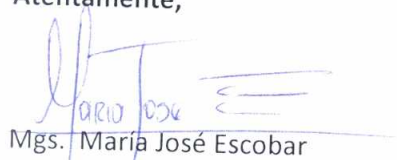 Atentamente,
Maria Jose E
Mgs. María José Escobar